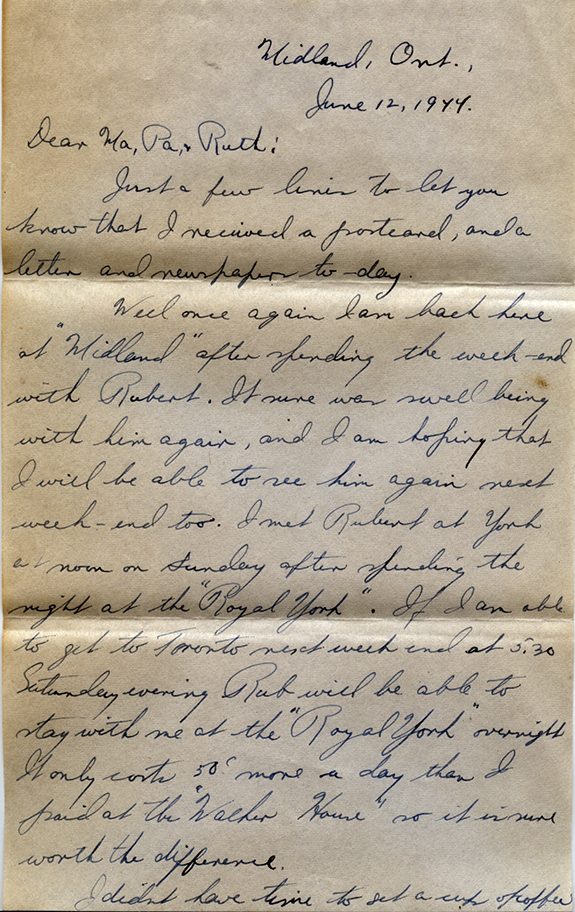 Midland, Ont.,
June 12, 1944.
Dear Ma, Pa, & Ruth:
Just a few lines to let you
know that I received a postcard, and a
letter and newspapers to-day.
Well once again I am back here
at "Midland" after spending the week-end
with Rubert. It sure was swell being
with him again, and I am hoping that
I will be able to see him again next
week-end too. I met Rubert at York
at noon on Sunday after spending the
night at the "Royal York". If I am able
to get to Toronto next week end at 5.30
Saturday evening Rub will be able to
stay with me at the "Royal York" overnight
It only costs 50¢ more a day than I
paid at the "Walker House" so it is sure
worth the difference.
I didnt have time to get a cup of coffee